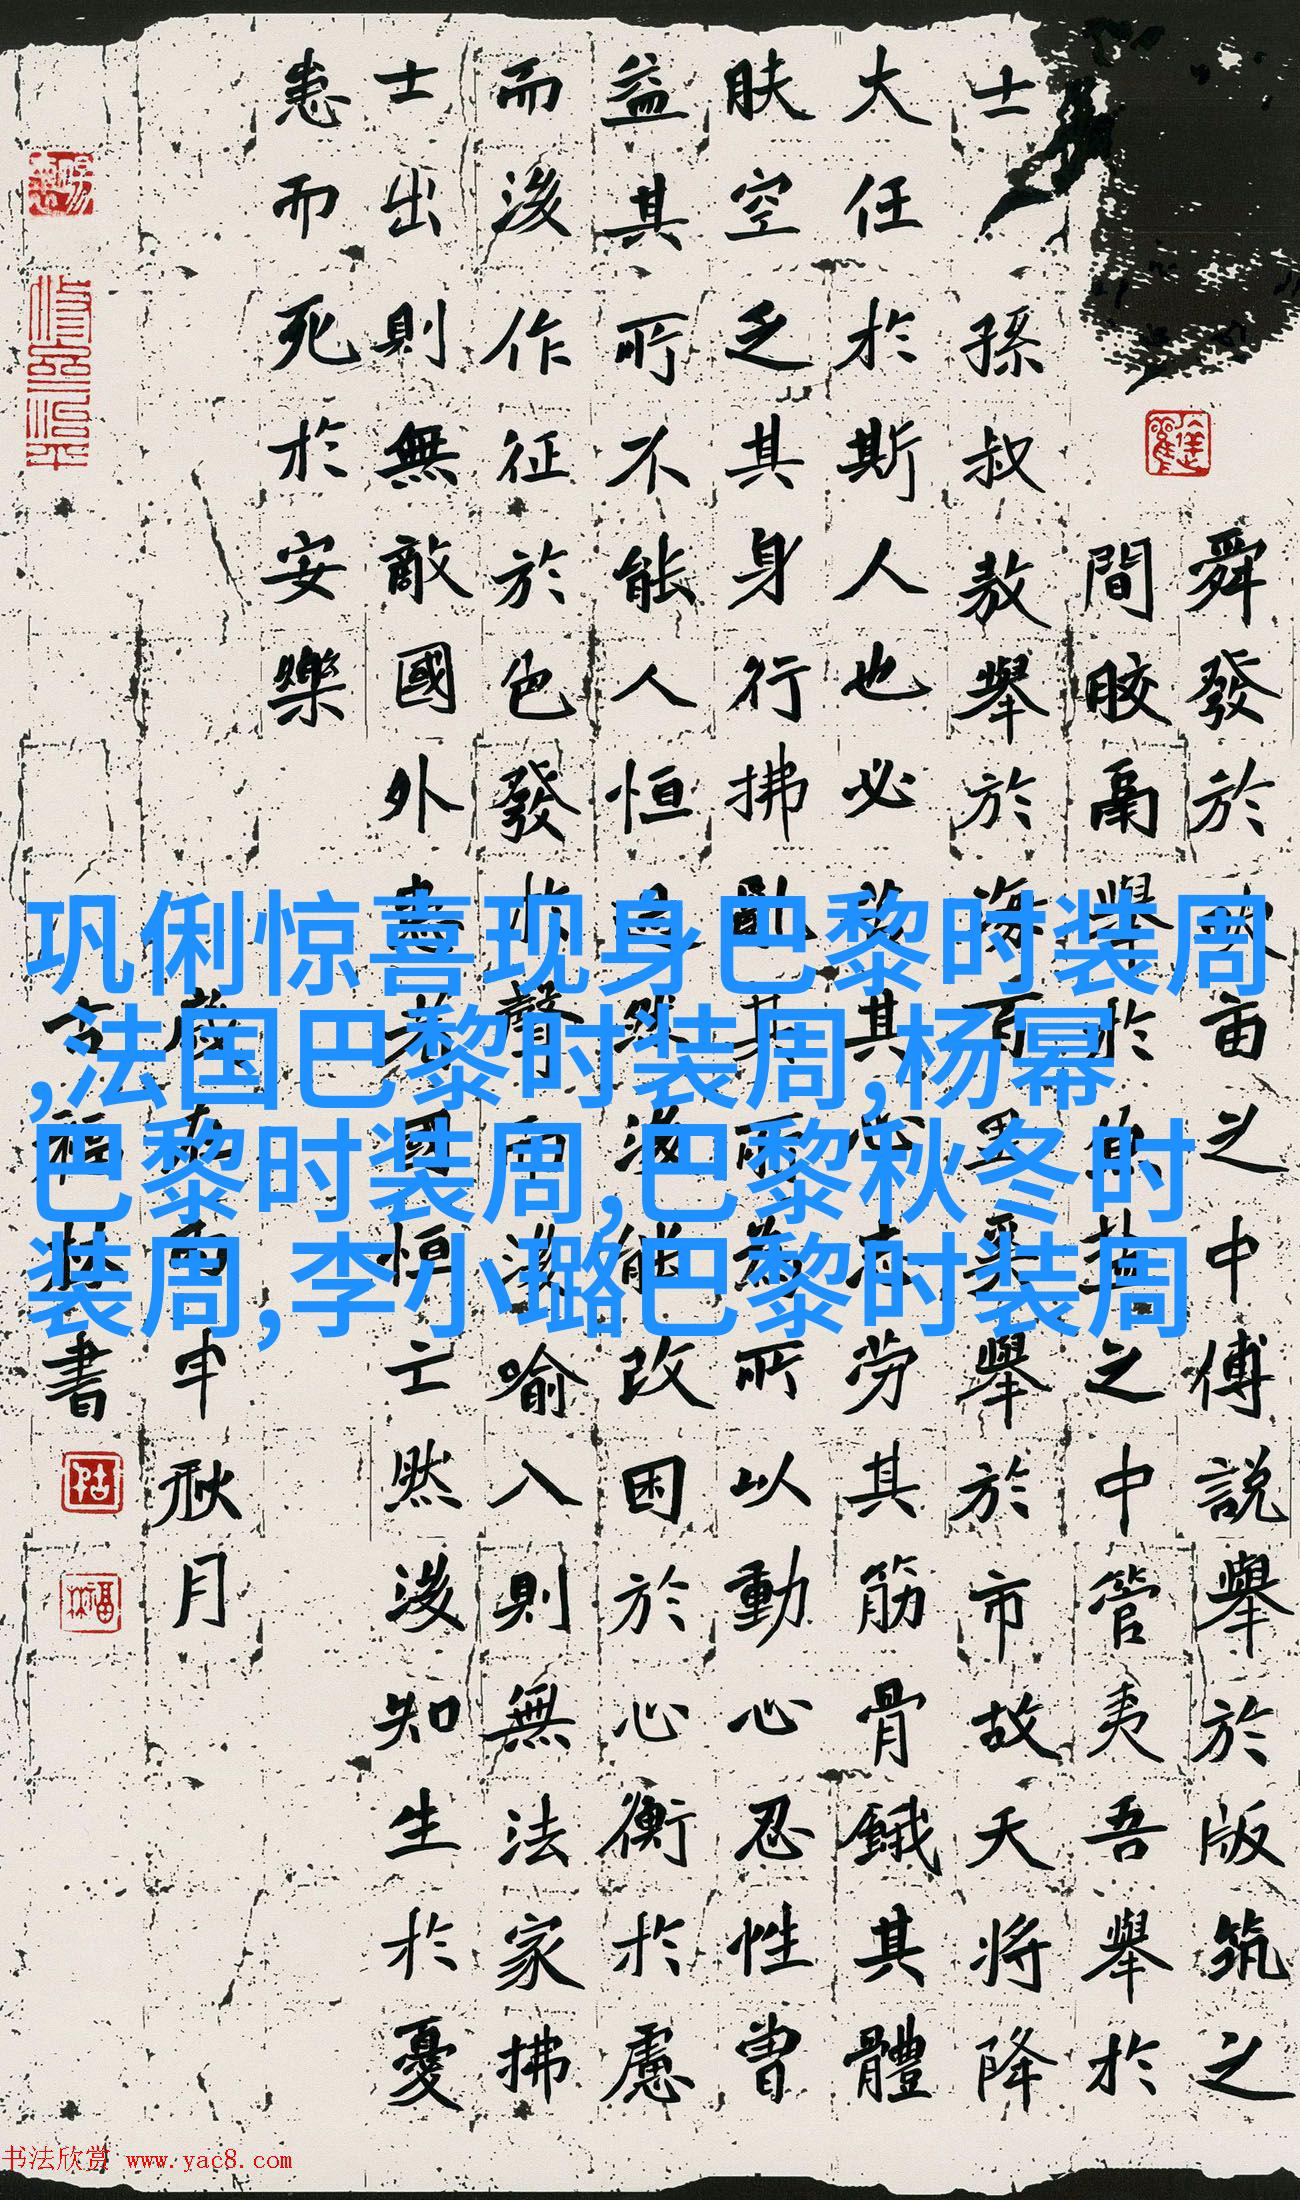 舜發於畎亩之中傅說舉於版筑之
間膠鬲舉於魚盐之中管夷吾舉於
士孫叔敖舉於海百里奚舉於市故天將降
大任於斯人也必苦其心志劳其筋骨餓其體
肤空乏其身行拂亂其所為所以動心忍性曾
益其所不能人恒過然後能改困於心衡於慮
而後作征於色發於聲而後喻入則無法家拂
士出則無敵國外患者國恒亡然後知生於憂
患而死於安樂
歲在丙申秋月
古福林書
巩俐惊喜现身巴黎时装周
,法国巴黎时装周,杨幂
巴黎时装周,巴黎秋冬时
装周,李小璐巴黎时装周
书法欣赏 www.yac8.com